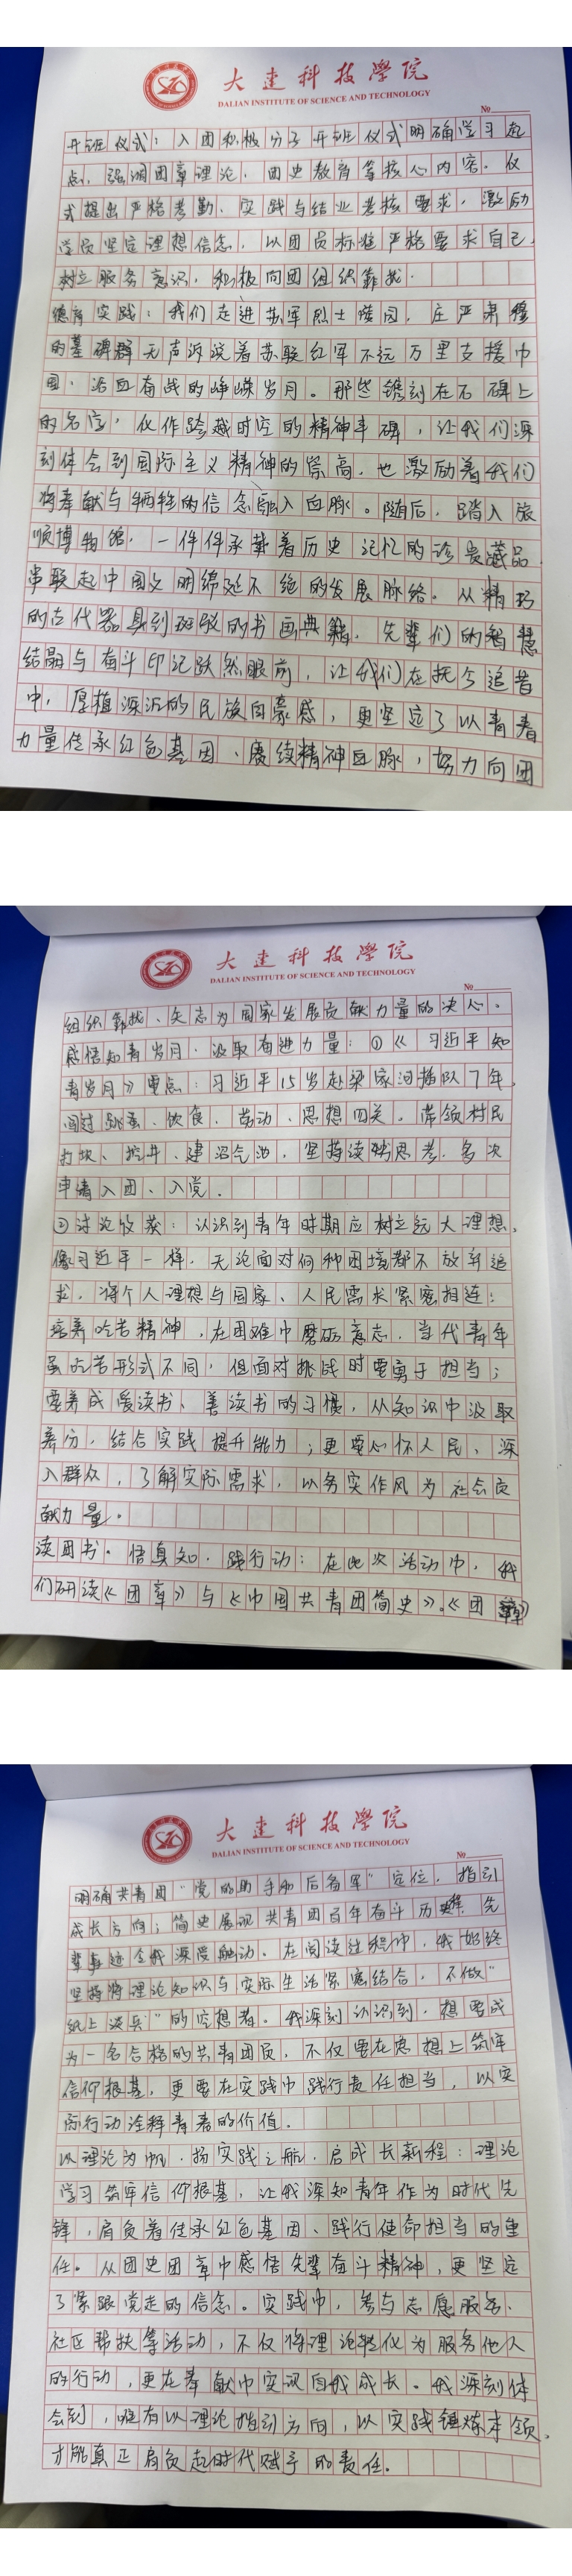 大连科技学院
DALIAN INSTITUTE OF SCIENCE AND TECHNOLOGY
No
开班仪式：入团积极分子开班仪式明确学习起
点，强调团章理论、团史教育等核心内容。仪
式提出严格考勤、实践与结业考核要求，激励
学员坚定理想信念，以团员标准严格要求自己，
树立服务意识，积极向团组织靠拢．
德育实践：我们走进苏军烈士陵园，庄严肃穆
的墓碑群无声诉说着苏联红军不远万里支援中
国、浴血奋战的峥嵘岁月。那些镌刻在石碑上
的名字，化作跨越时空的精神丰碑，让我们深
刻体会到国际主义精神的崇高，也激励着我们
将奉献与牺牲的信念融入血脉。随后，踏入旅
顺博物馆，一件件承载着历史记忆的珍贵藏品
串联起中国文明绵延不绝的发展脉络。从精巧
的古代器具到斑驳的书画典籍，先辈们的智慧
结晶与奋斗印记跃然眼前，让我们在抚今追昔
中，厚植深沉的民族自豪感，更坚定了以青春
力量传承红色基因、赓续精神血脉，努力向团
大连科技学院
DALIAN INSTITUTE OF SCIENCE AND TECHNOLOGY
No
组织靠拢、矢志为国家发展贡献力量的决心。
感悟知青岁月，汲取奋进力量：①《习近平知
青岁月》重点：习近平15岁赴梁家河插队7年，
闯过跳蚤、饮食、劳动、思想四关，带领村民
打坝、挖井、建沼气池，坚持读书思考，多次
申请入团、入党。
②讨论收获：认识到青年时期应树立远大理想，
像习近平一样，无论面对何种困境都不放弃追
求，将个人理想与国家、人民需求紧密相连；
培养吃苦精神，在困难中磨砺意志，当代青年
虽吃苦形式不同，但面对挑战时要勇于担当；
要养成爱读书、善读书的习惯，从知识中汲取
养分，结合实践提升能力；更要心怀人民、深
入群众，了解实际需求，以务实作风为社会贡
献力量。
读团书。悟真知．践行动：在此次活动中，我
们研读《团章》与《中国共青团简史》。《团章》
大连科技学院
DALIAN INSTITUTE OF SCIENCE AND TECHNOLOGY
No
明确共青团“党的助手和后备军”定位，指引
成长方向；简史展现共青团百年奋斗历程，先
辈事迹令我深受触动。在阅读过程中，我始终
坚持将理论知识与实际生活紧密结合，不做“
纸上谈兵”的空想者。我深刻认识到，想要成
为一名合格的共青团员，不仅要在思想上筑牢
信仰根基，更要在实践中践行责任担当，以实
际行动诠释青春的价值．
以理论为帆．扬实践之航．启成长新程：理论
学习筑牢信仰根基，让我深知青年作为时代先
锋，肩负着传承红色基因、践行使命担当的重
任。从团史团章中感悟先辈奋斗精神，更坚定
了紧跟党走的信念。实践中，参与志愿服务、
社区帮扶等活动，不仅将理论转化为服务他人
的行动，更在奉献中实现自我成长。我深刻体
会到，唯有以理论指引方向，以实践锤炼本领，
才能真正肩负起时代赋予的责任．